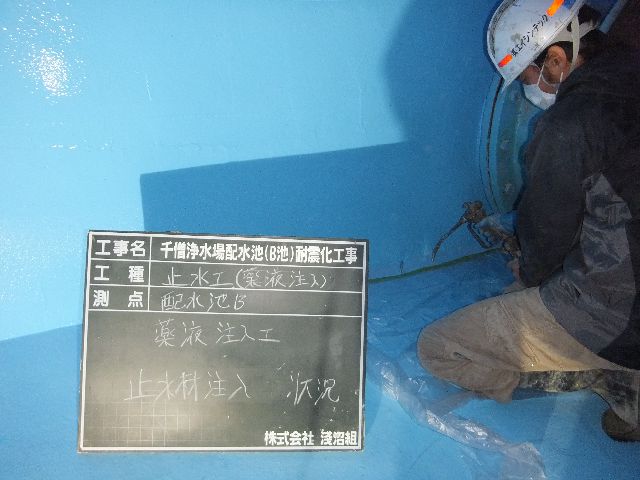 工事名 千僧浄水場配水池(B池)耐震化工事
工種 止水工(薬液注入)
測点 配水池B
薬液注入工
止水材注入 状況
株式会社 浅沼組